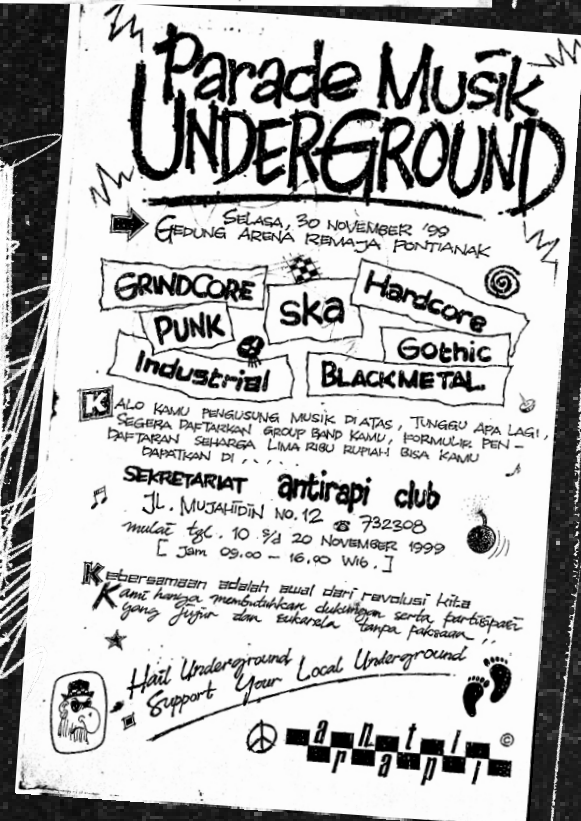 Parade Musik
UNDERGROUND
SELASA, 30 NOVEMBER '99
GEDUNG ARENA REMAJA PONTIANAK
GRINDCORE
ska
Hardcore
PUNK
Gothic
Industrial
BLACKMETAL.
KALO KAMU PENGUSUNG MUSIK DI ATAS, TUNGGU APA LAGI,
SEGERA DAFTARKAN GROUP BAND KAMU, FORMULIR PEN-
DAFTARAN SEHARGA LIMA RIBU RUPIAH BISA KAMU
DAPATKAN DI . . . . .
SEKRETARIAT antirapi club
JL. MUJAHIDIN NO. 12 ☎ 732308
mulai tgl. 10 s/d 20 NOVEMBER 1999
[ Jam 09.00 - 16.00 Wib. ]
Kebersamaan adalah awal dari revolusi kita
Kami hanya membutuhkan dukungan serta partisipasi
yang jujur dan sukarela tanpa paksaan,,
Hail Underground
Support Your Local Underground
anti
rapi
©